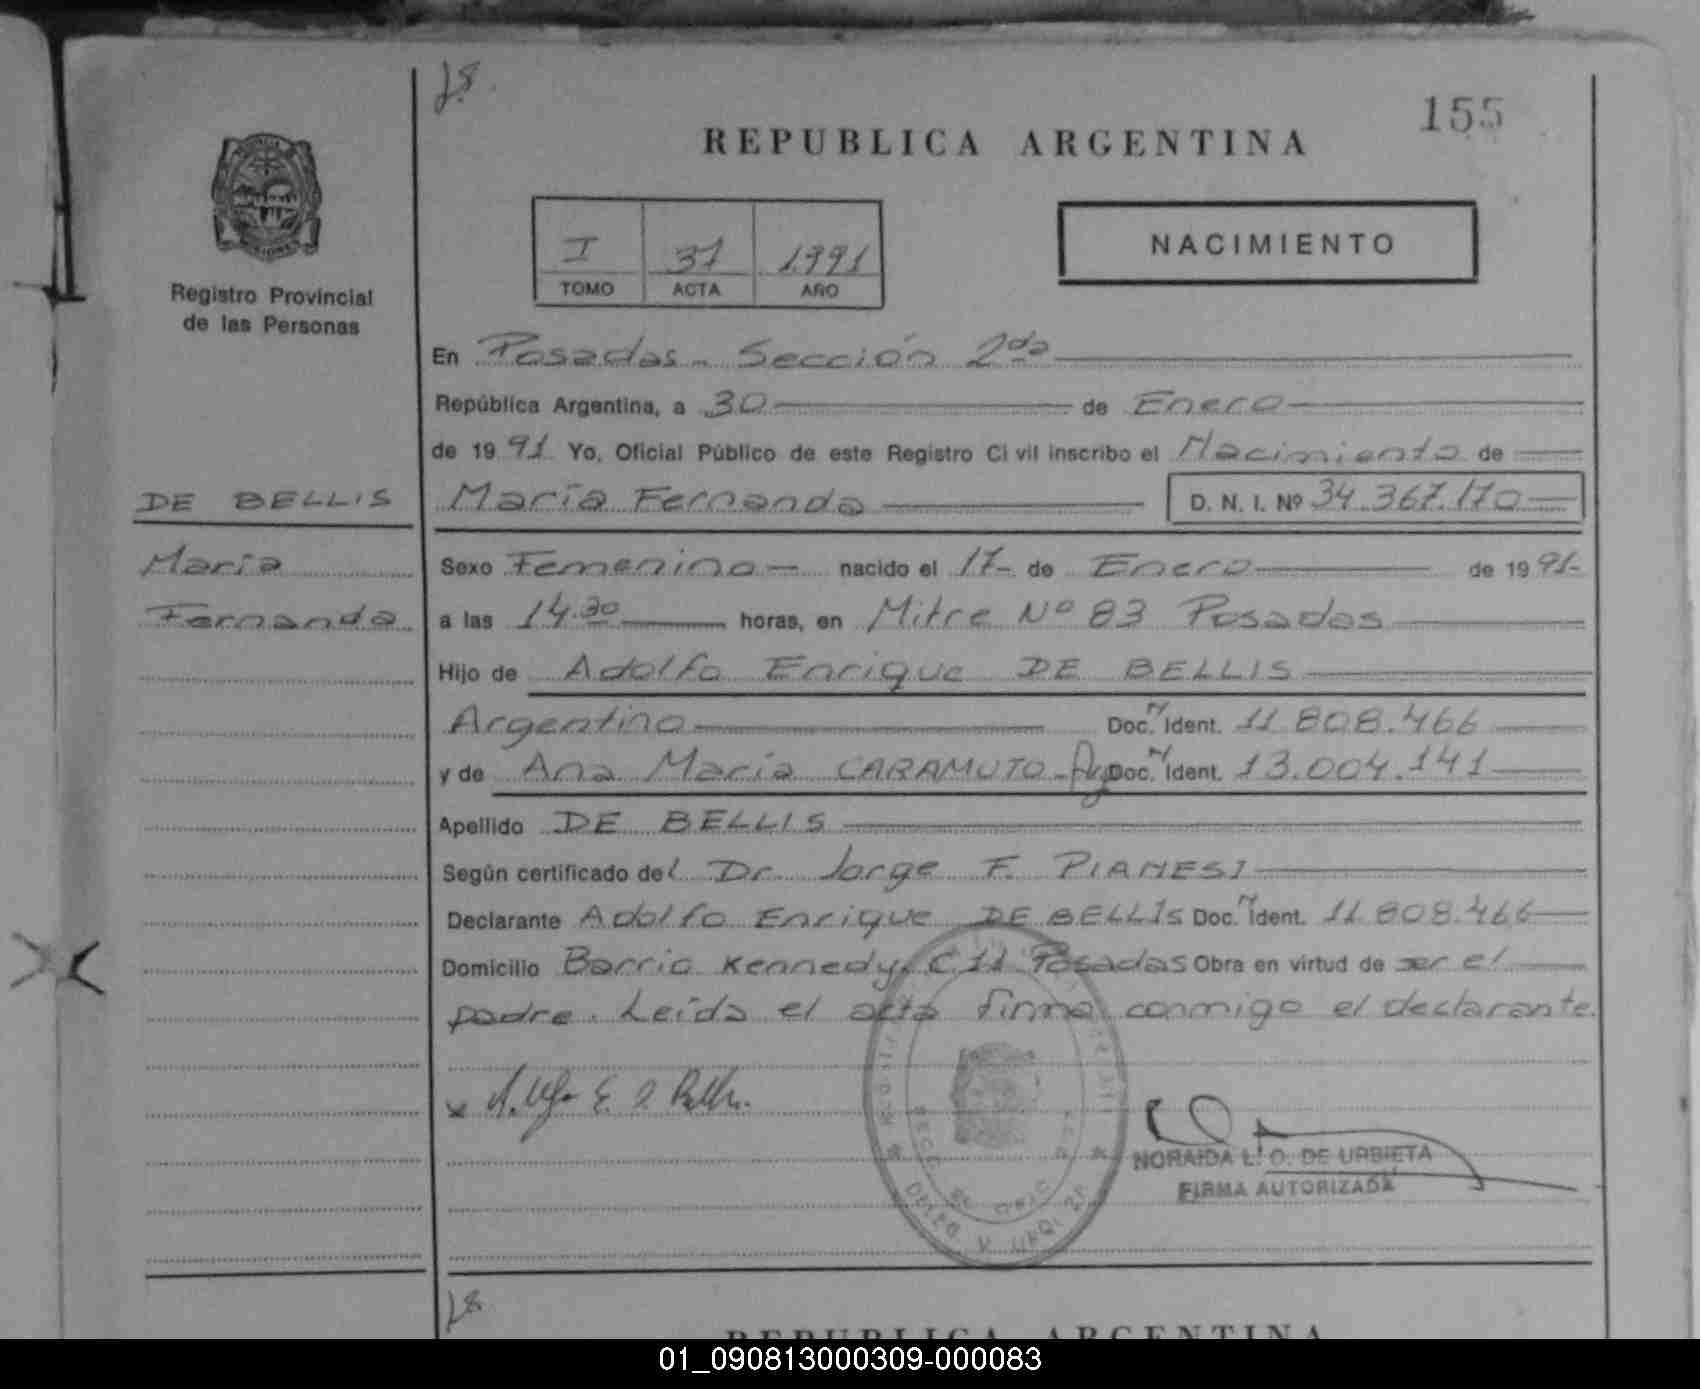 155
REPUBLICA ARGENTINA
I 37 1991
TOMO ACTA AÑO
NACIMIENTO
Registro Provincial
de las Personas
En Posadas - Sección 2da
República Argentina, a 30 de Enero
de 1991 Yo, Oficial Público de este Registro Ci vil inscribo el Nacimiento de
DE BELLIS
María Fernanda D. N. I. Nº 34.367.170
María
Fernanda
Sexo Femenino - nacido el 17- de Enero de 1991-
a las 14.30 horas, en Mitre Nº 83 Posadas
Hijo de Adolfo Enrique DE BELLIS
Argentino Doc. N Ident. 11.808.466
y de Ana María CARAMUTO - Arg Doc. N Ident. 13.004.141
Apellido DE BELLIS
Según certificado del Dr. Jorge F. PIANESI
Declarante Adolfo Enrique DE BELLIS Doc. N Ident. 11.808.466
Domicilio Barrio Kennedy, C 11 Posadas Obra en virtud de ser el
padre. Leída el acta firma conmigo el declarante.
NORAIDA L. O. DE URBIETA
FIRMA AUTORIZADA
REPUBLICA ARGENTINA
01_090813000309-000083